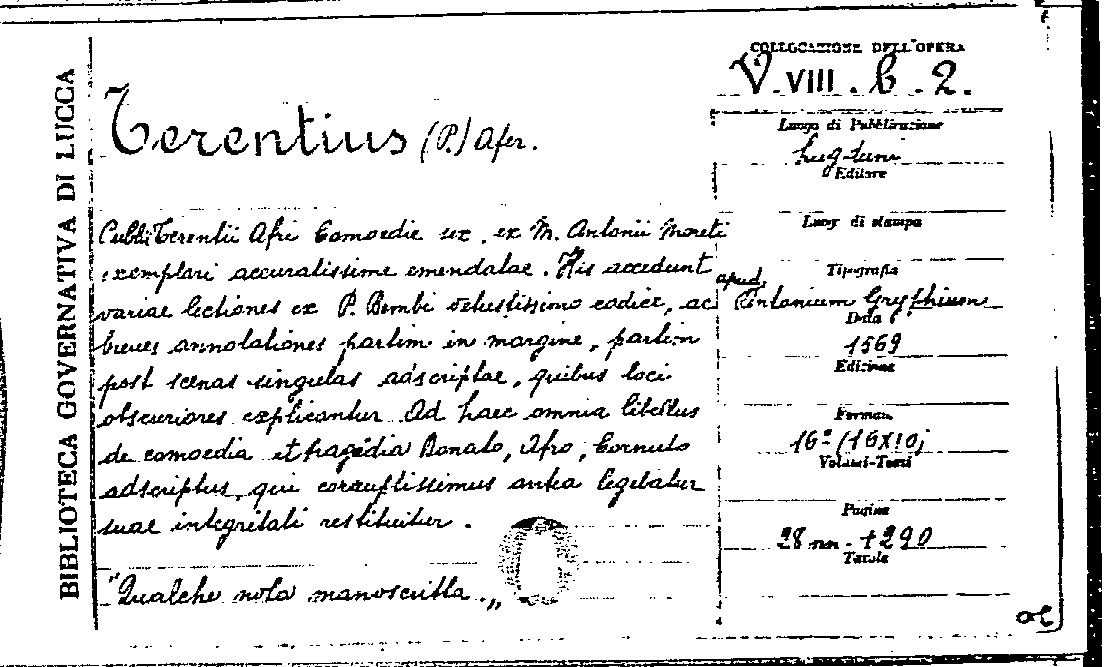 BIBLIOTECA GOVERNATIVA DI LUCCA
Terentius (P.) Afer.
Publii Terentii Afri Comoedie sex, ex M. Antonii Moreti
exemplari accuratissime emendatae. His accedunt
variae lectiones ex P. Bembi vetustissimo codice, ac
breves annotationes partim in margine, partim
post scenas singulas adscriptae, quibus loci
obscuriores explicantur. Ad haec omnia libellus
de comoedia et tragedia Donato, Afro, Cornuto
adscriptus, qui corruptissimus antea legebatur
suae integritati restituitur.
"Qualche nota manoscritta.„
COLLOCAZIONE DELL'OPERA
V. VIII. b. 2.
Luogo di Pubblicazione
Lugduni
Editore
Luog. di stampa
Tipografia
apud
Antonium Gryphium
Data
1569
Edizione
Formato
16º (16X10)
Volumi-Tomi
Pagine
28 nn. + 290
Tavole